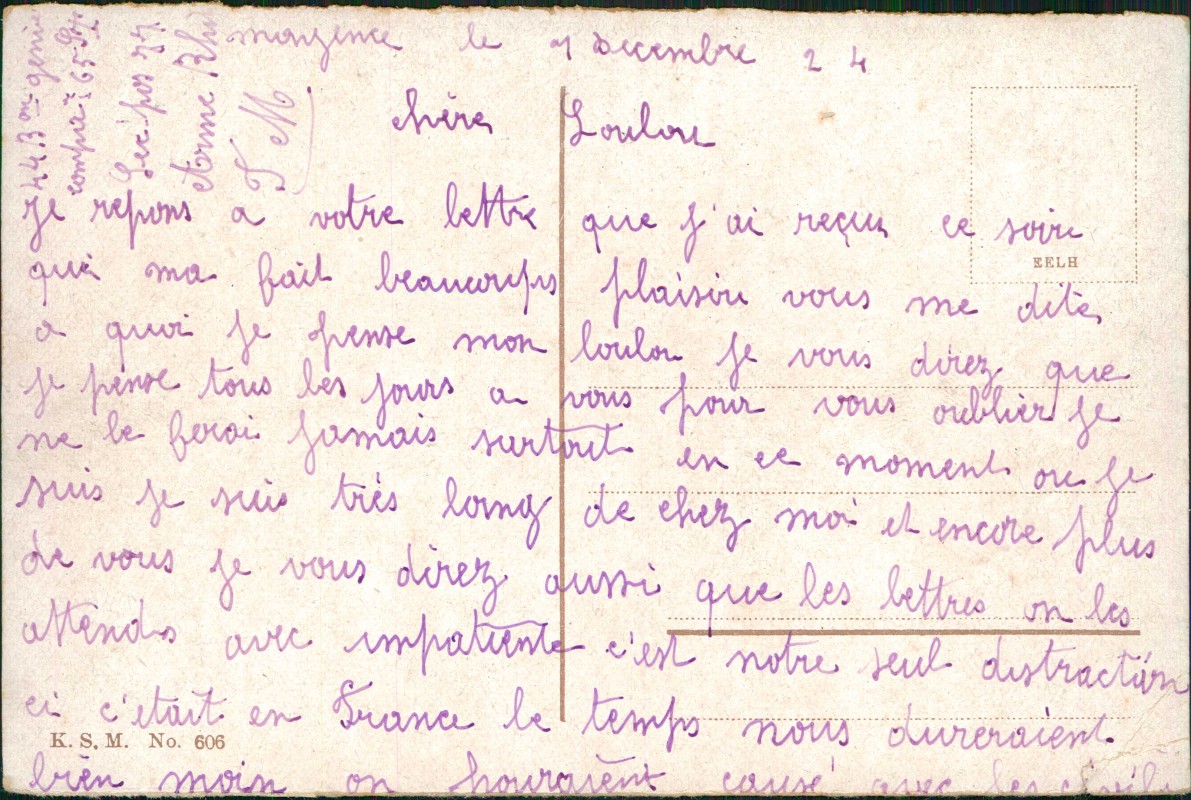 mayence le 7 Decembre 24
443me génie
compie 65-90
Sec. pos 77
Arme Rhin
T M
chère Loulou
je repons a votre lettre que j'ai reçu ce soir
qui ma fait beaucoups plaisir vous me dite
a quoi je pense mon loulou je vous direz que
je pense tous les jours a vous pour vous oublier je
ne le ferai jamais surtout en ce moment ou je
suis je suis très loing de chez moi et encore plus
de vous je vous direz aussi que les lettres on les
attends avec impatiente c'est notre seul distraction
ci c'était en France le temps nous dureraient
bien moin on pouraient causé avec les civils
EELH
K. S. M. No. 606